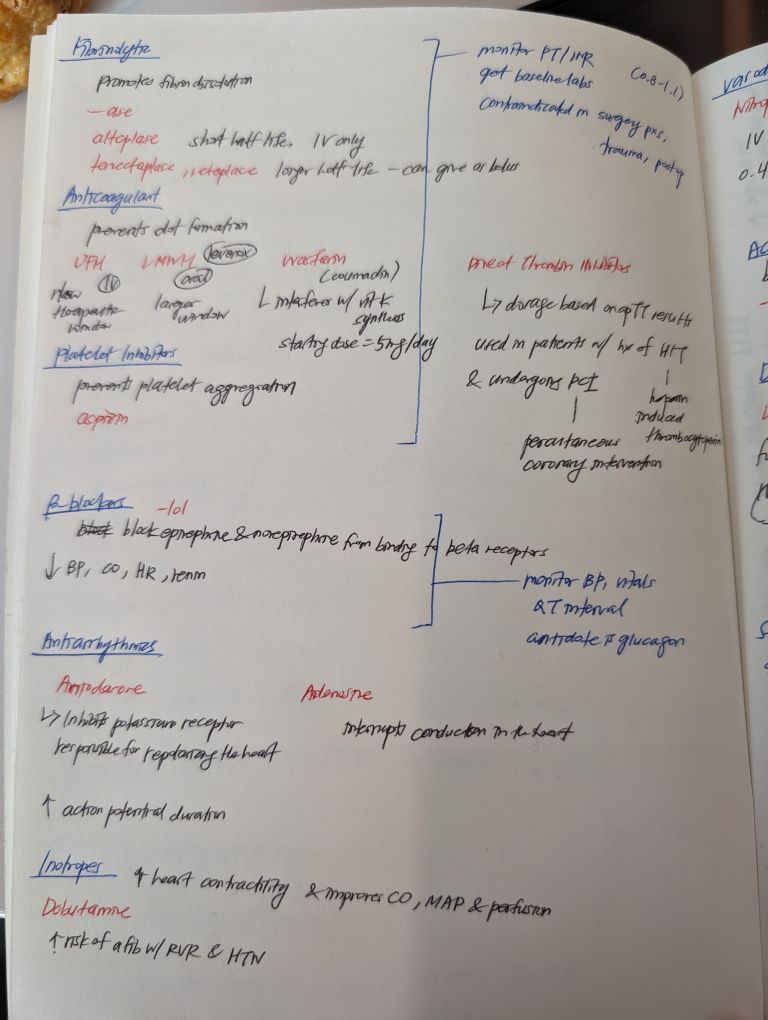 Fibrinolytic
promotes fibrin dissolution
-ase
alteplase short half life, IV only
tenecteplase, reteplase longer half life - can give as bolus
monitor PT/INR
get baseline labs (0.8-1.1)
contraindicated in surgery pts,
trauma, postop
Anticoagulant
prevents clot formation
UFH IV
narrow
therapeutic
window
LMWH lovenox
oral
larger
window
Warfarin
(coumadin)
↳ interferes w/ vit K
synthesis
starting dose = 5mg/day
Direct Thrombin Inhibitors
↳ dosage based on aPTT results
used in patients w/ hx of HIT
& undergoing PCI
heparin
induced
thrombocytopenia
percutaneous
coronary intervention
Platelet Inhibitors
prevents platelet aggregation
aspirin
β-blockers -lol
block block epinephrine & norepinephrine from binding to beta receptors
↓ BP, CO, HR, renin
monitor BP, vitals
QT interval
antidote is glucagon
Antiarrhythmics
Amiodarone
↳ Inhibits potassium receptor
responsible for repolarizing the heart
↑ action potential duration
Adenosine
interrupts conduction in the heart
Inotropes ↑ heart contractility & improves CO, MAP & perfusion
Dobutamine
↑ risk of afib w/ RVR & HTN
IV
0.4